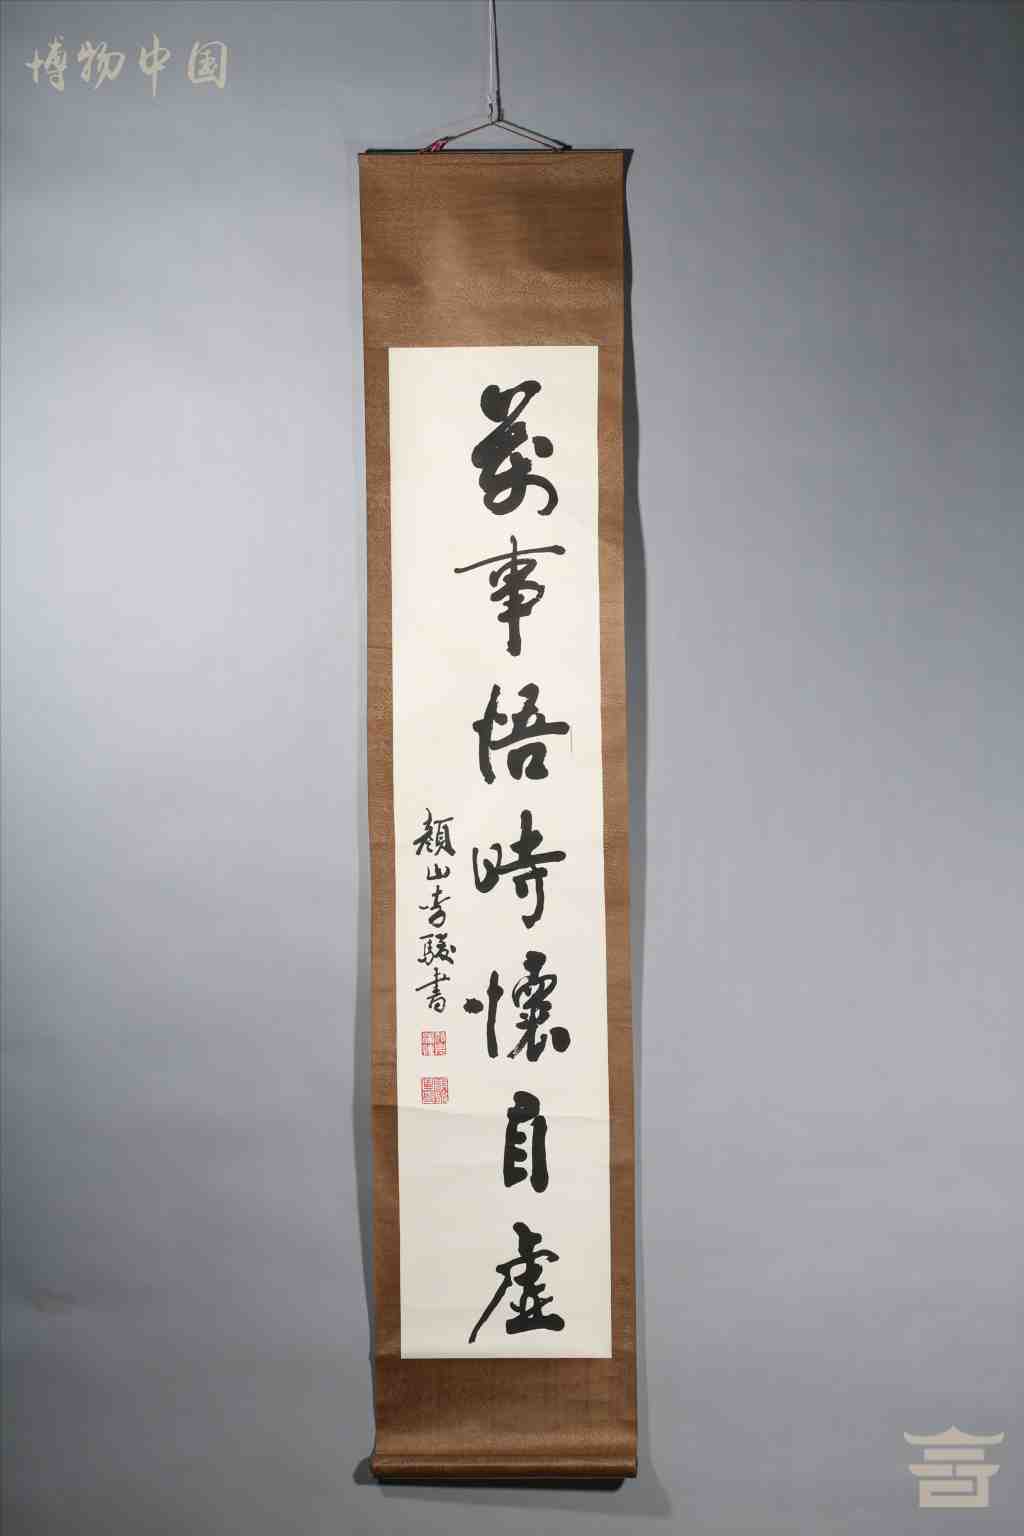 博物中国
萬事悟時懷自虛
顏山李駿書